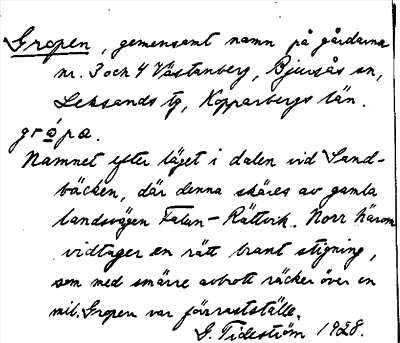 Gropen, gemensamt namn på gårdarna
nr. 3 och 4 Västanberg, Bjursås sn,
Leksands tg, Kopparbergs län.
grópa.
Namnet efter läget i dalen vid Sand-
bäcken, där denna skäres av gamla
landsvägen Falun-Rättvik. Norr härom
vidtager en rätt brant stigning,
som med smärre avbrott räcker över en
mil. Gropen var förrastställe.
G. Tideström 1928.